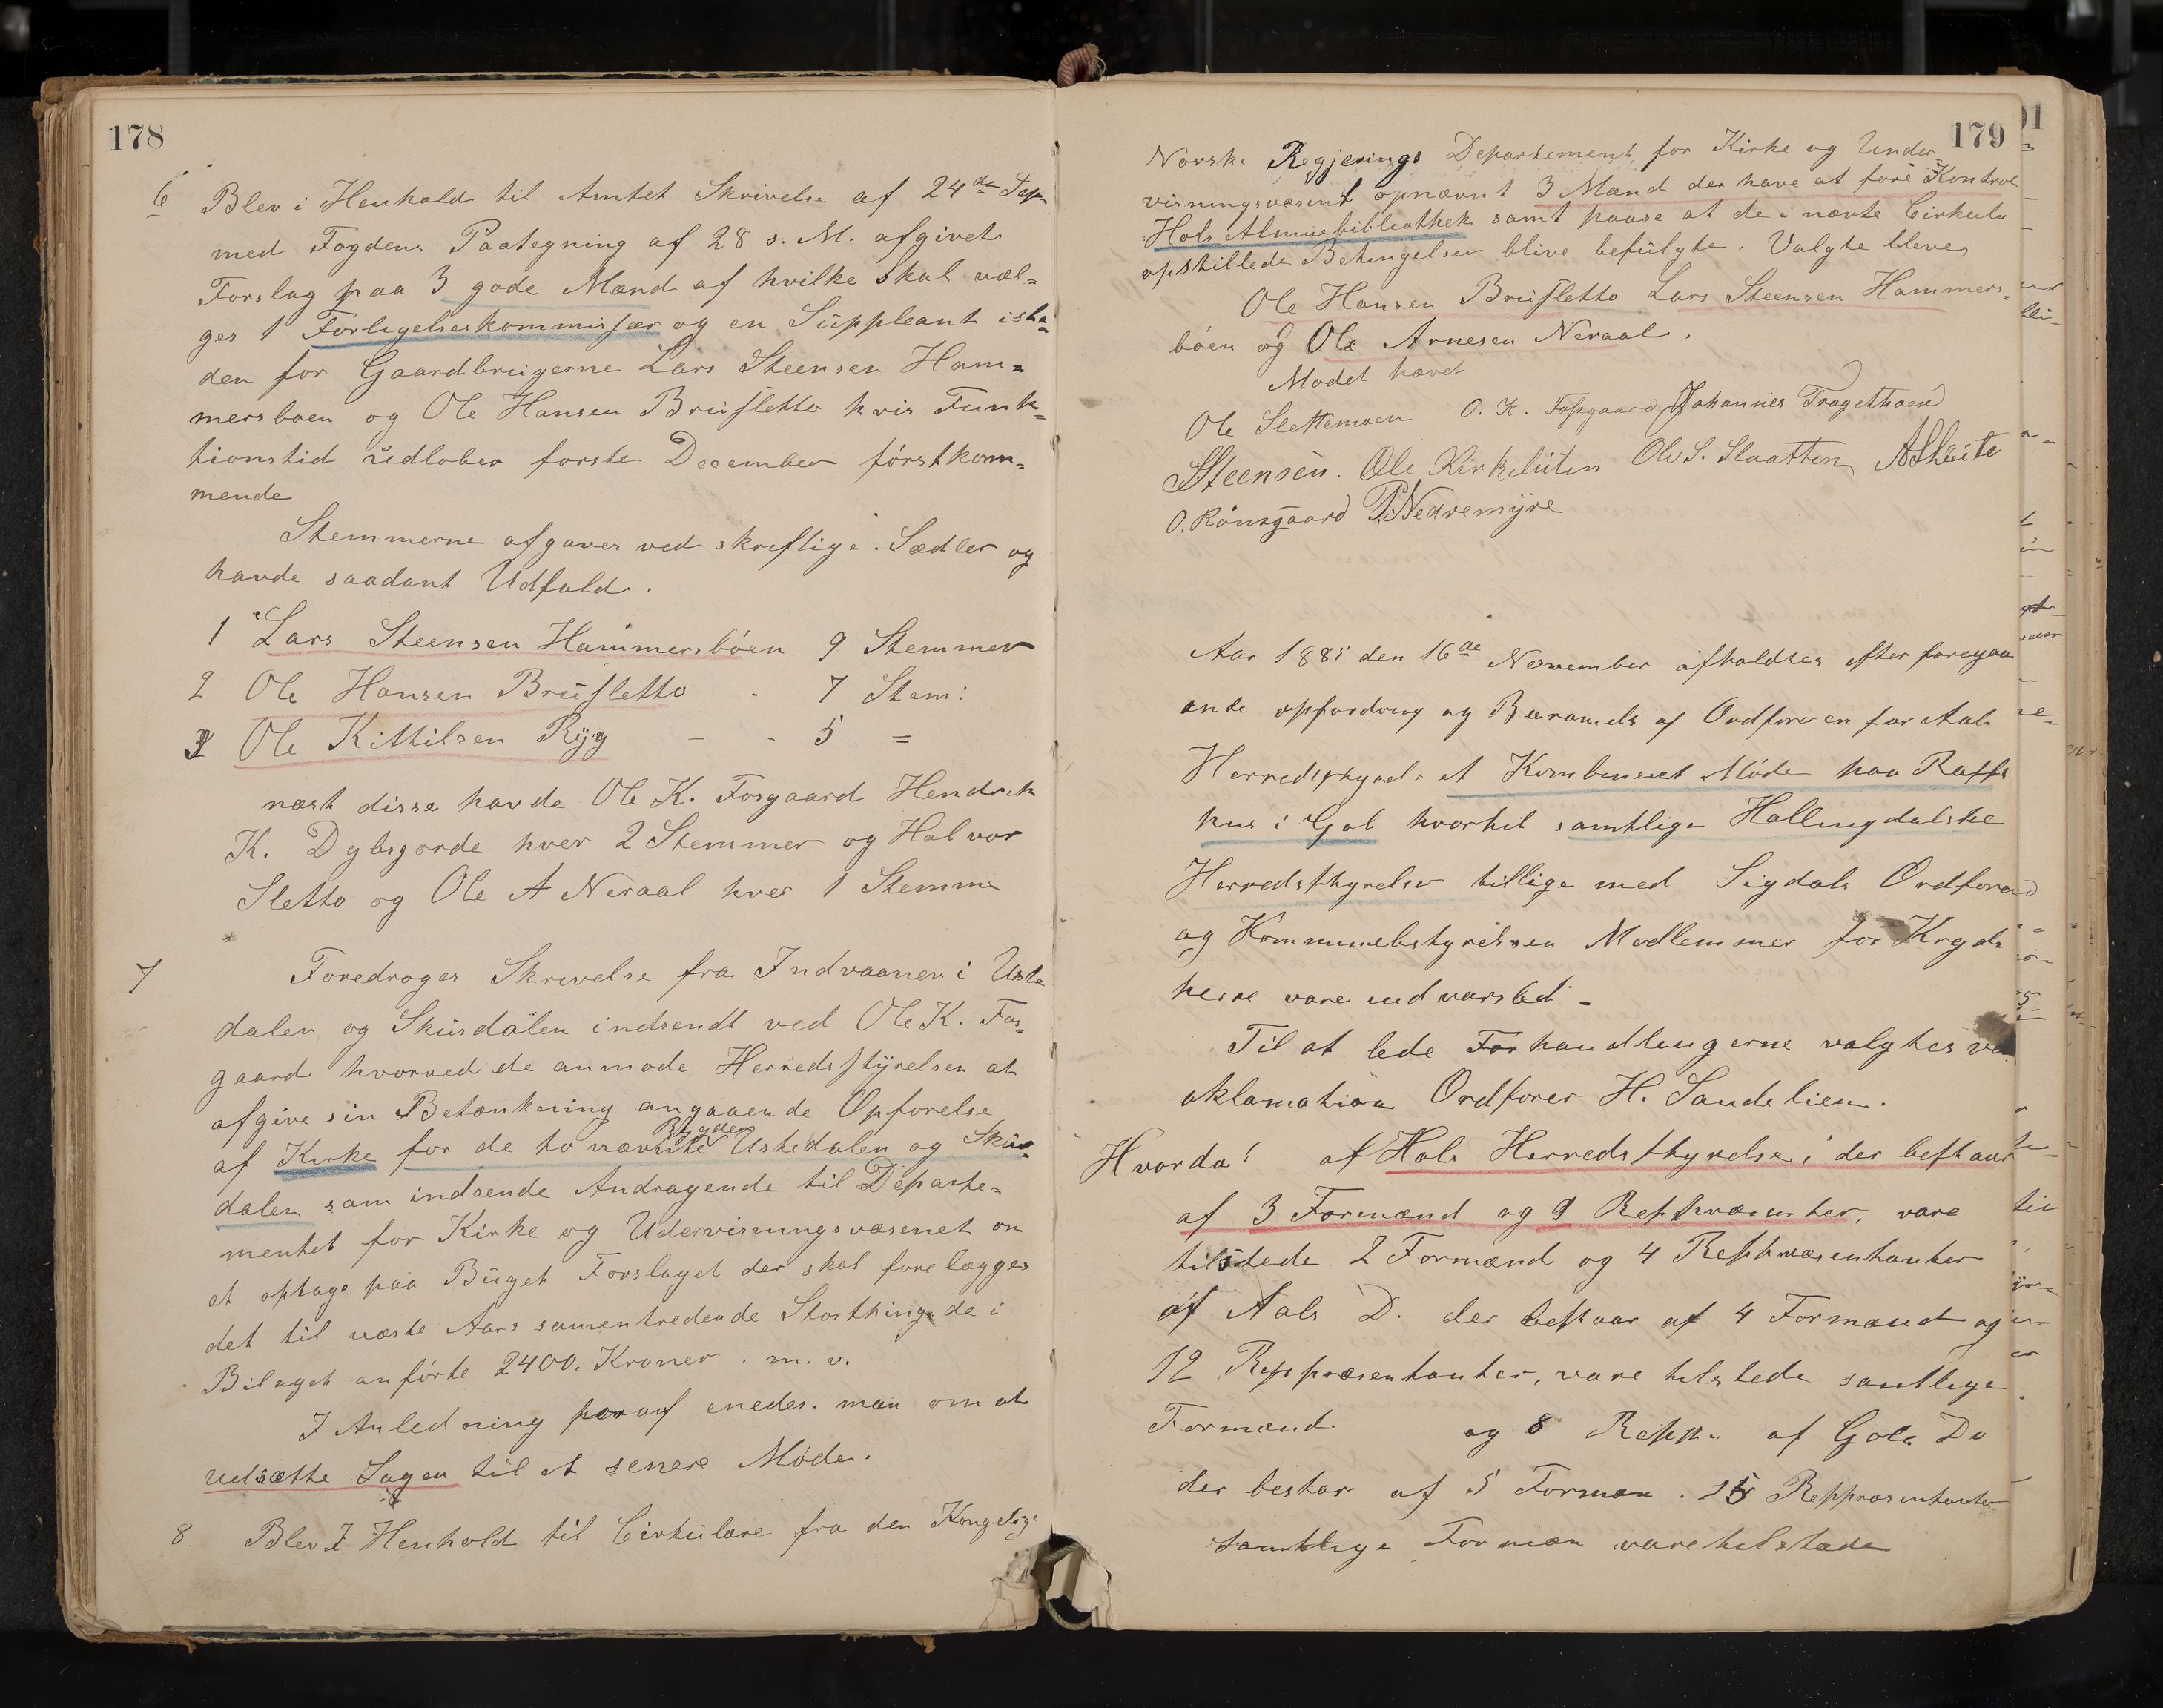 178
6 Blev i Henhold til Amtet Skrivelse af 24de Sep
med Fogdens Paategning af 28 s. M. afgivet
Forslag paa 3 gode Mænd af hvilke skal væl=
ges 1 Forligelseskommissær og en Suppleant iste=
den for Gaardbrugerne Lars Steensen Ham=
mersboen og Ole Hansen Brusletto hvis Funk=
tionstid udlober forste December förstkom=
mende
Stemmerne afgaves ved skriftlige Sedler og
havde saadant Udfald.
1 Lars Steensen Hammersböen 9 Stemmer
2 Ole Hansen Brusletto - 7 Stem:
3 Ole Kittilsen Ryg - - 5 =
næst disse havde Ole K. Fosgaard Hendrik
K. Dybsgorde hver 2 Stemmer og Halvor
Sletto og Ole A Neraal hver 1 Stemme
7 Foredroges Skrivelse fra Indvaaner i Uste
dalen og Skusdalen indsendt ved Ole K. Fos=
gaard hvorved de anmode Herredsstyrelsen at
afgive sin Betænkning angaaende Opforelse
Bygder
af Kirke for de to nævnte Ustedalen og Skus=
dalen som indsende Andragende til Departe=
mentet for Kirke og Udervisningsvæsenet om
at optage paa Buget Forslaget der skal forelægges
det til næste Aars samentredende Storthing de i
Bilaget anförte 2400. Kroner . m. v.
I Anledning heraf enedes man om at
udsætte Sagen til et senere Möde.
8. Blev I Henhold til Cirkulære fra den Kongelige
179
Norske Regjerings Departement for Kirke og Under
visningsvæsent opnævnt 3 Mænd der have at före Kontrol
Hols Almuebibliothek samt paase at de i nævte Cirkulæ
opstillede Betingelser blive befulgte. Valgte bleve
Ole Hansen Brusletto Lars Steensen Hammers=
böen og Ole Arnesen Neraal.
Modet hævet
Ole Slettemoen O. K. Fosgaard Johannes Tragethoen
Steensen. Ole Kirkeluten Ole S. Slaatten
O. Rönsgaard P. Nedremyre
Aar 1885 den 16de November afholdtes efter foregaa
ende opfordring og Berammels af Ordföreren for Aals
Herredsstyrels et Kombineret Möde paa Rafts
hus i Gol hvortil samtlige Hallingdalske
Herredsstyrelser tillige med Sigdals Ordforer
og Kommunebstyrelsen Medlemmer for Kryds
herre vare indvarsled -
Til at lede Forhandlingerne valgtes ved
aklamation Ordforer H. Sandelien.
Hvorda! af Hols Herredsstyrelse, der bestaar
af 3 Formænd og 9 Repræsenter, vare
tilstede 2 Formænd og 4 Repræsentanter
af Aals D. der bestaar af 4 Formænd og
12 Reppræsentanter, vare tilstede samtlige
Formænd. og 8 Repr. af Gols Do
der bestar af 5 Formæn . 15 Reppræsentanter
Samtlige Formæn vare tilstæde